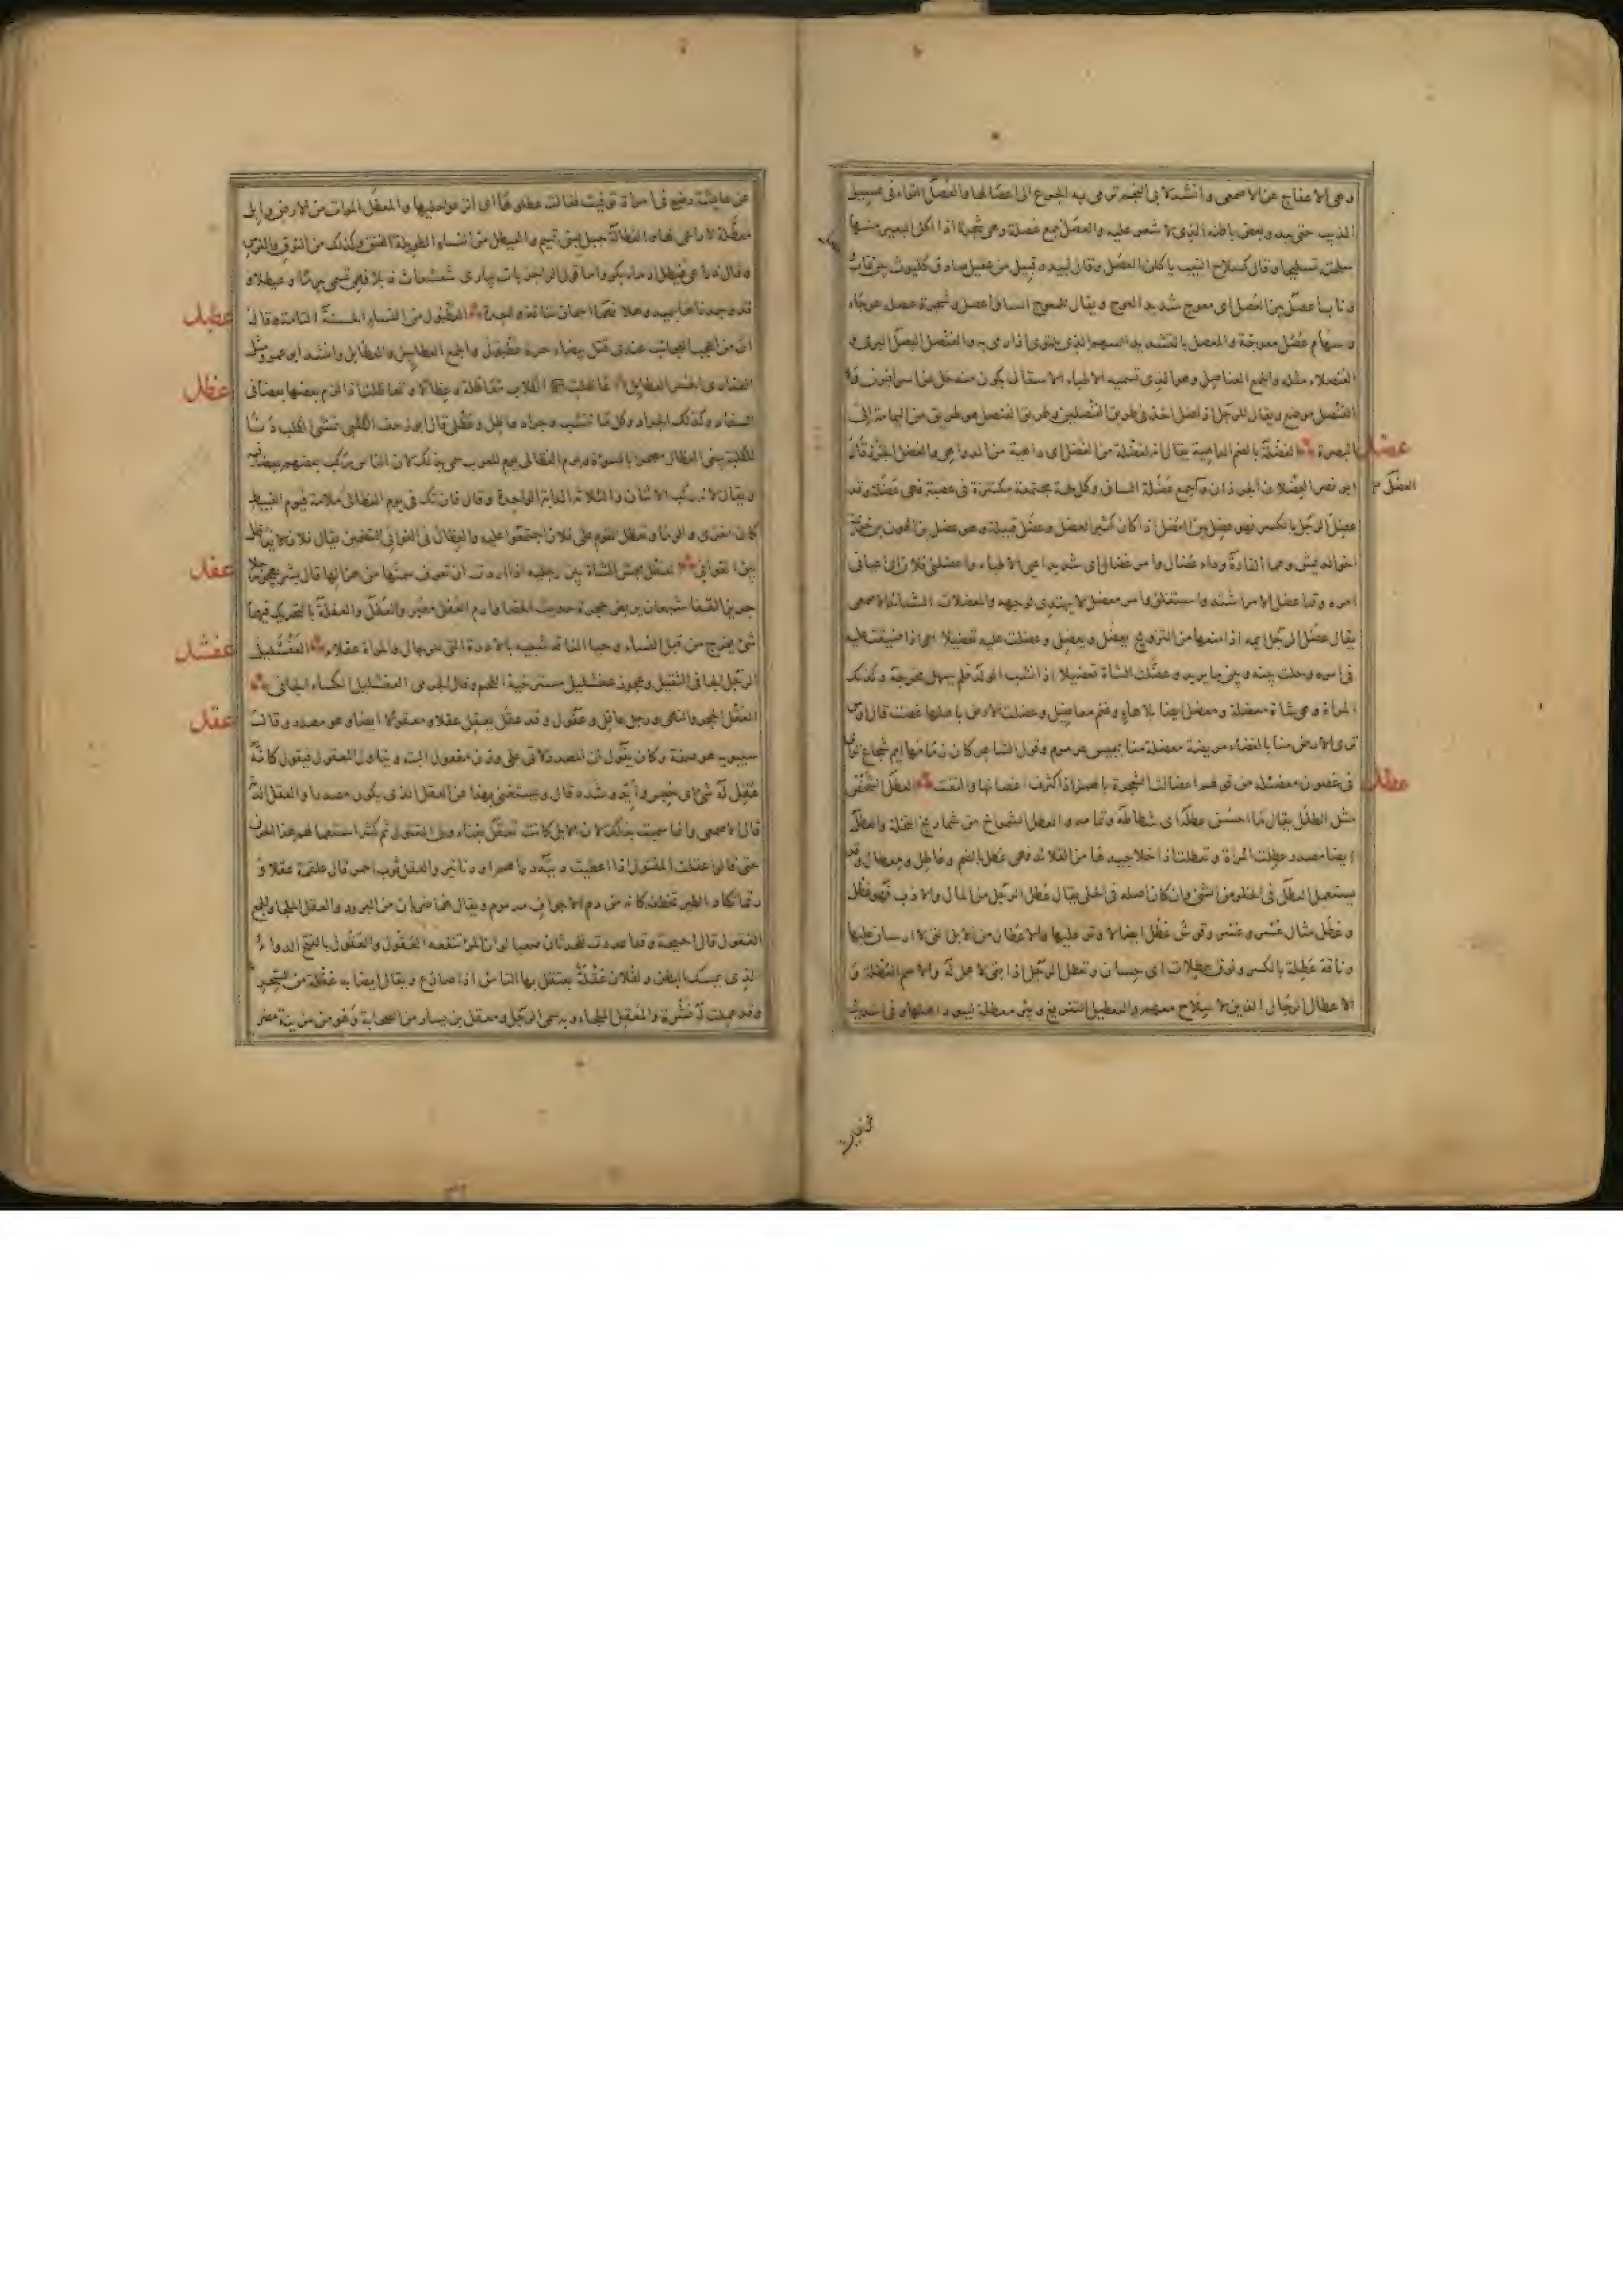 وهي الاعفاج عن الاصمعي وانشد لابي النجم ترمي به الجزع الى اعصالها والعصل التواء في عسيب
الذنب حتى يبدو بعض باطنه الذي لا شعر عليه والعصل جمع عصلة وهي شجرة اذا اكل البعير منها
سلحته تسليحا وقال كسلاح النيب ياكلن العصل وقال لبيد وقبيل من عقيل صادق كليوث بين غاب
وناب اعصل بين العصل اي معوج شديد العوج ويقال للمعوج الساق اعصل وشجرة عصلة عوجاء
وسهام عصل معوجة والمعصل بالتشديد السهم الذي يلتوي اذا رمي به والعنصل البصل البري و
العنصلاء مثله والجمع العناصل وهو الذي تسميه الاطباء الاسقال يكون منه خل عن
العنصل موضع ويقال للرجل اذا ضل اخذ في طريق العنصلين وطريق العنصل هو طريق من اليمامة الى
عضل
البصرة العضلة بالضم الداهية يقال انه لعضلة من العضل اي داهية من الدواهي والعضل الجرذ قال
العضل
ابو نصر العضلان الجرذان وكل لحمة مجتمعة مكتنزة في عصبة فهي عضلة وقد
عضل الرجل بالكسر فهو عضل بين العضل اذا كان كثير العضل وعضل قبيلة وهو عضل بن الهون بن خزيمة
اخو الديش وهما القارة وداء عضال وامر عضال اي شديد اعيى الاطباء واعضلني فلان اي اعياني
امره وقد اعضل الامر اشتد واستغلق وامر معضل لا يهتدى لوجهه والمعضلات الشدائد الاصمعي
يقال عضل الرجل ايمه اذا منعها من التزويج يعضل ويعضل وعضلت عليه تعضيلا اي اذا ضيقت عليه
في امره وحلت بينه وبين ما يريد وعضلت الشاة تعضيلا اذا نشب الولد فلم يسهل مخرجه وكذلك
المراة وهي شاة معضلة ومعضل ايضا بلا هاء وغنم معاضيل وعضلت الارض باهلها غصت قال اوس
ترى الارض منا بالفضاء مريضة معضلة منا بجمع عرمرم وقول الشاعر كان زمامها ايم شجاع
عطل
في غصون معضئلة من قولهم اعضالت الشجرة بالهمز اذا كثرت اغصانها والتفت العطل الشخص
مثل الطلل يقال ما احسن عطله اي شطاطه وتمامه والعطل الشمراخ من شماريخ النخلة والعطل
ايضا مصدر عطلت المراة وتعطلت اذا خلا جيدها من القلائد فهي عطل بالضم وعاطل ومعطال وقد
يستعمل العطل في الخلو من الشئ وان كان اصله في الحلي يقال عطل الرجل من المال والادب فهو عطل
وعطل مثال عسر وعسر وقوس عطل ايضا لا وتر عليها والاعطال من الابل التي لا ارسان عليها
وناقة عطلة بالكسر ونوق عطلات اي حسان وتعطل الرجل اذا بقي لا عمل له والاسم العطلة و
الاعطال الرجال الذين لا سلاح معهم والتعطيل التفريغ وبئر معطلة لبيود اهلها وفي حديث
عن عايشة رضي في امراة توفيت فقالت عطلوها اي انزعوا حليها والمعطل الموات من الارض وابل
معطلة لا راعي لها والعطالة جبل لبني تميم والعيطل من النساء الطويلة العنق وكذلك من النوق والفرس
وقال ذراعي عيطل ادماء بكر واما قول الراجز بات يباري شعشعات ذبلا فهي تسمى زمزما وعيطلا
عطبل
العطبول من النساء الحسنة التامة وقال
ان من اعجب العجائب عندي قتل بيضاء حرة عطبول والجمع العطابيل والعطابل وانشد ابو عمرو
عظل
عاظلت الكلاب معاظلة وعظالا وتعاظلت اذا لزم بعضها بعضا في
السفاد وكذلك الجراد وكل ما تنشب وجراد عاظلة وعظلى قال ابو زحف الكلبي تمشي الكلب دنا
للكلبة يبغي العظال مصحرا بالسوءة ويوم العظالى يوم للعرب سمي بذلك لان الناس ركب بعضهم بعضا فيه
ويقال لانه ركب الاثنان والثلاثة الدابة الواحدة وقال فان تك في يوم العظالى ملامة فيوم الغبيط
كان اخزى والوما وتعظل القوم على فلان اجتمعوا عليه والعظال في القوافي التضمين يقال فلان لا يعاظل
عفل
بين القوافي العفل مجس الشاة بين رجليها اذا اردت ان تعرف سمنها من هزالها قال بشر يهجو رجلا
جزيز القفا شبعان يربض حجرة حديث الخصاء وارم العفل معبر والعفل والعفلة بالتحريك فيهما
عفشل
شئ يخرج من قبل النساء وحياء الناقة شبيه بالادرة التي للرجال والمراة عفلاء العفشليل
الرجل الجافي الثقيل وعجوز عفشليل مسترخية اللحم وقال الجرمي العفشليل الكساء الجافي
عقل
العقل الحجر والنهى ورجل عاقل وعقول وقد عقل يعقل عقلا ومعقولا ايضا وهو مصدر وقال
سيبويه هو صفة وكان يقول ان المصدر لا تاتي على وزن مفعول البتة ويتاول المعقول فيقول كانه
عقل له شئ اي حبس وايد وشدد قال ويستغنى بهذا عن العقل الذي يكون مصدرا والعقل الدية
قال الاصمعي وانما سميت بذلك لان الابل كانت تعقل بفناء ولي المقتول ثم كثر استعمالهم هذا الحرف
حتى قالوا عقلت المقتول اذا اعطيت ديته دراهم او دنانير والعقل ثوب احمر قال علقمة عقلا و
رقما تكاد الطير تخطفه كانه من دم الاجواف مدموم ويقال هما ضربان من البرود والعقل الملجا والجمع
العقول قال احيحة وقد اعددت للحدثان صعبا لو ان المرء تنفعه العقول والعقول بالفتح الدواء
الذي يمسك البطن ولفلان عقلة يعتقل بها الناس اذا صارع ويقال ايضا به عقلة من السحر
وقد عملت له نشرة والمعقل الملجاء وبه سمي الرجل ومعقل بن يسار من الصحابة وهو من مزينة مضر